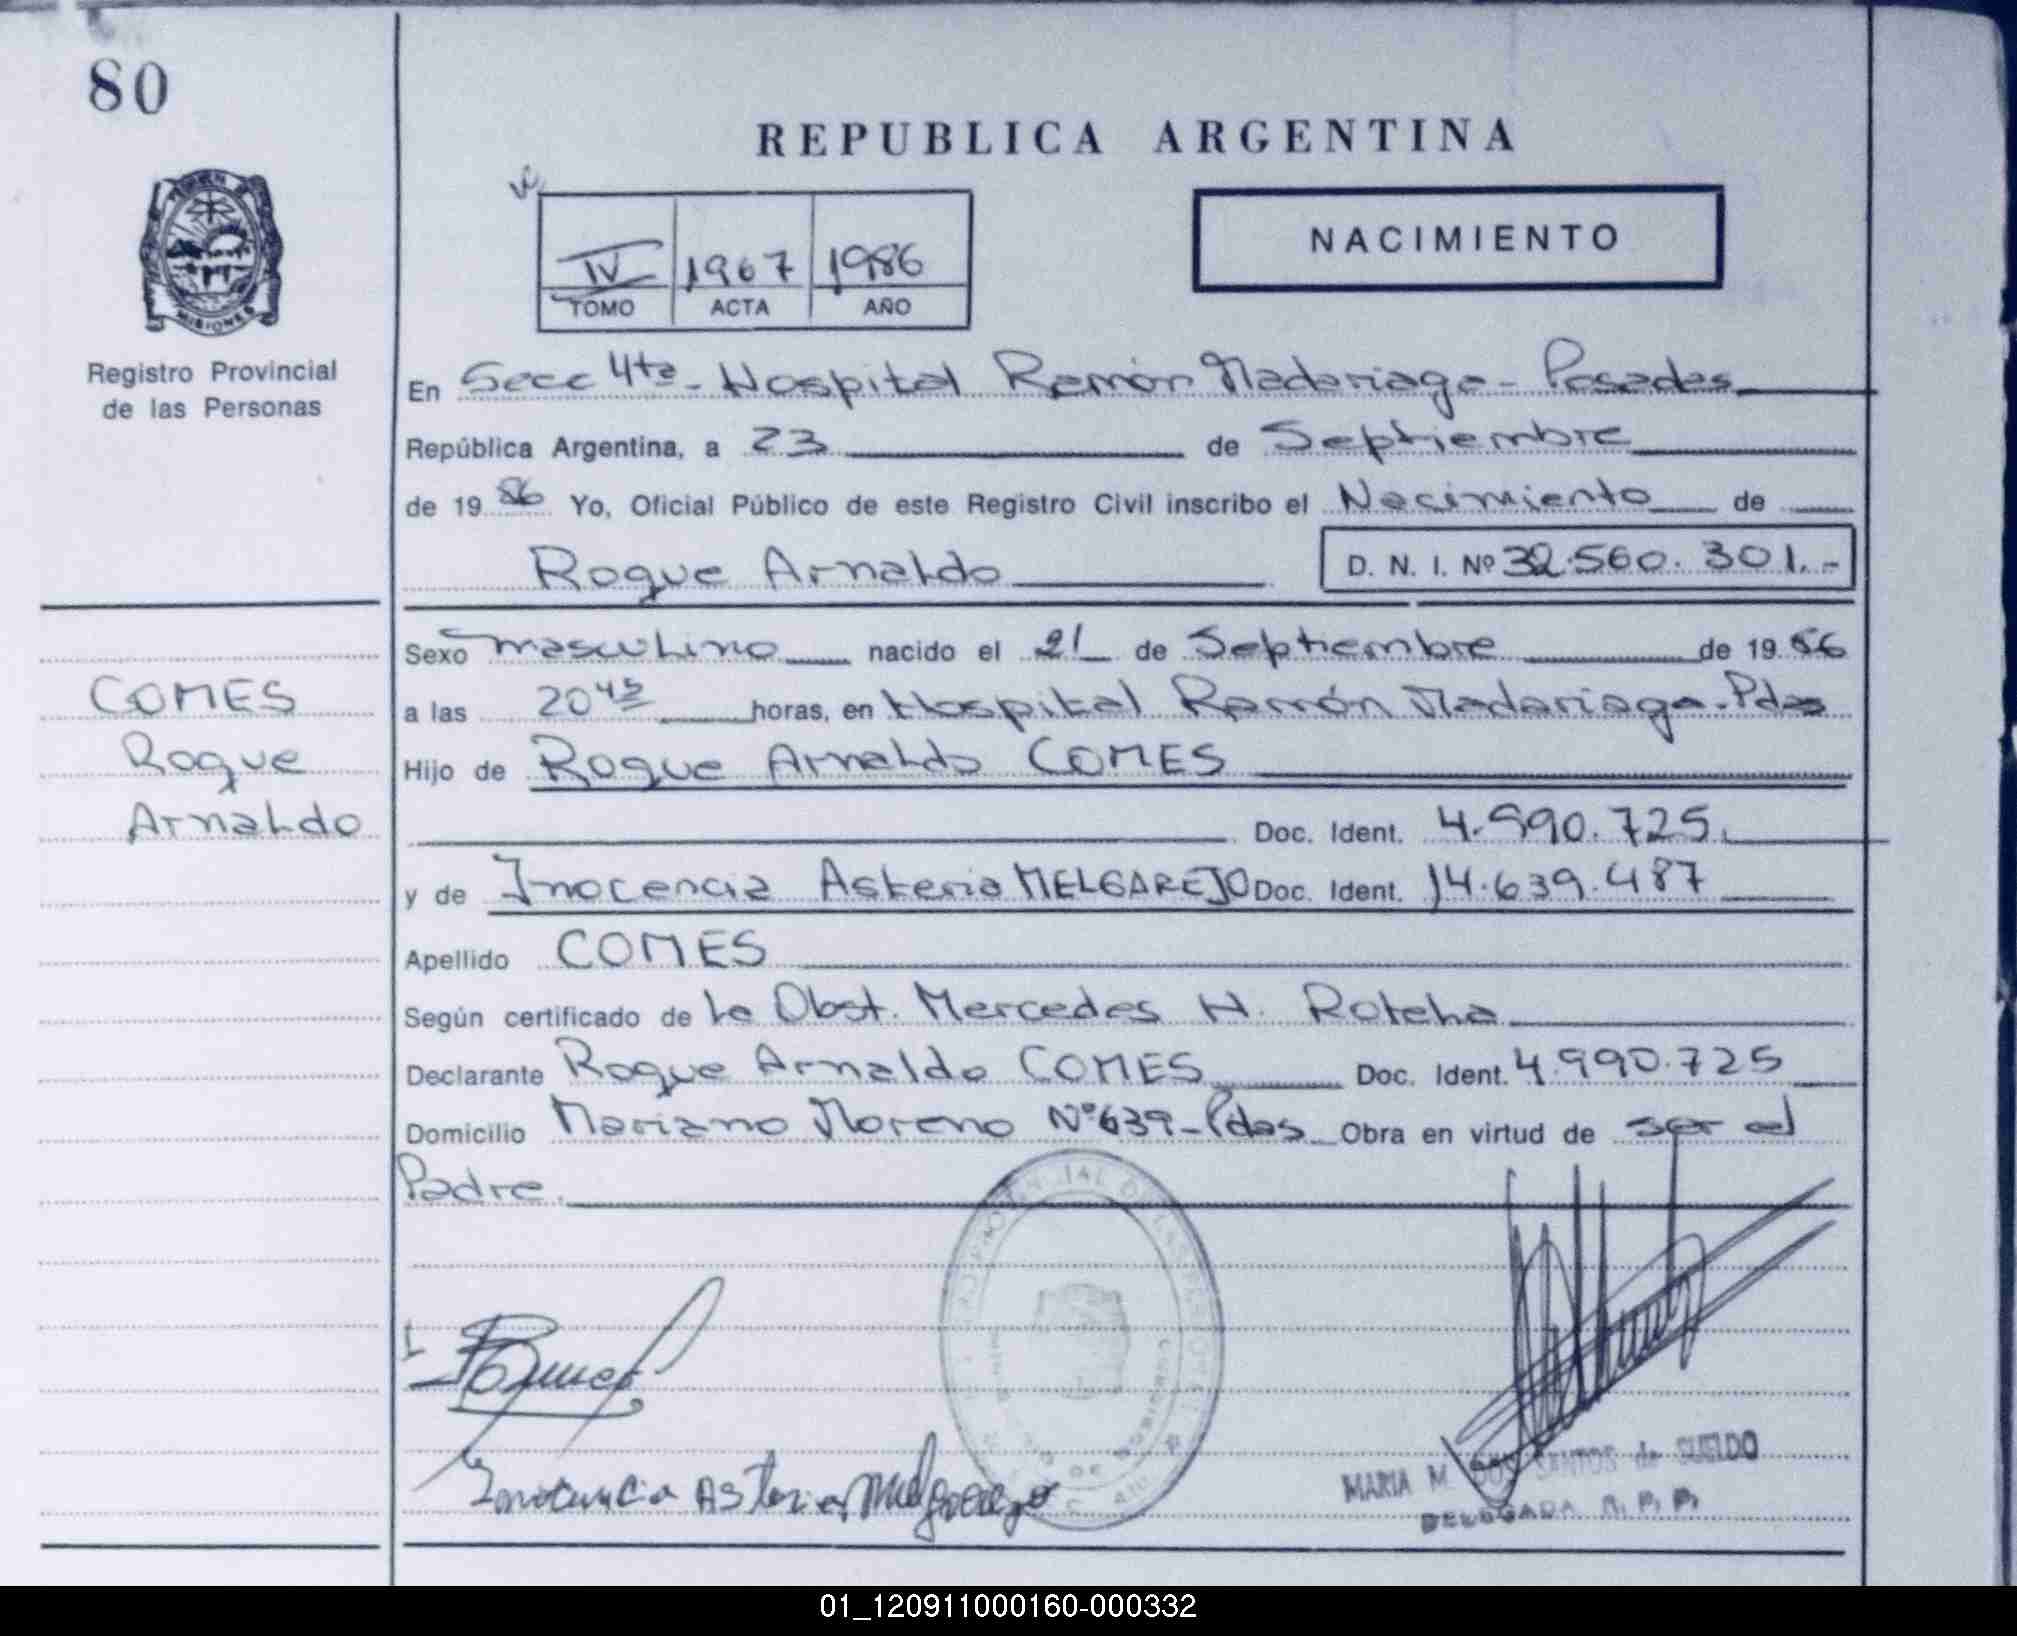 80
REPUBLICA ARGENTINA
NACIMIENTO
IV 1967 1986
TOMO ACTA AÑO
MISIONES
Registro Provincial
de las Personas
En Secc 4ta - Hospital Ramón Madariaga - Posadas
República Argentina, a 23 de Septiembre
de 1986 Yo, Oficial Público de este Registro Civil inscribo el Nacimiento de
Roque Arnaldo D. N. I. Nº 32.560.301.-
Sexo masculino nacido el 21 de Septiembre de 1986
a las 20 45 horas, en Hospital Ramón Madariaga - Pdas
Hijo de Roque Arnaldo COMES
Doc. Ident. 4.990.725
y de Inocencia Asteria MELGAREJO Doc. Ident. 14.639.487
Apellido COMES
Según certificado de la Obst. Mercedes H.
Declarante Roque Arnaldo COMES Doc. Ident. 4.990.725
Domicilio Mariano Moreno Nº 639 - Pdas Obra en virtud de ser el
Padre.
COMES
Roque
Arnaldo
Inocencia Asteria Melgarejo
MARIA M. DOS SANTOS de SUELDO
DELEGADA R. P. P.
01_120911000160-000332